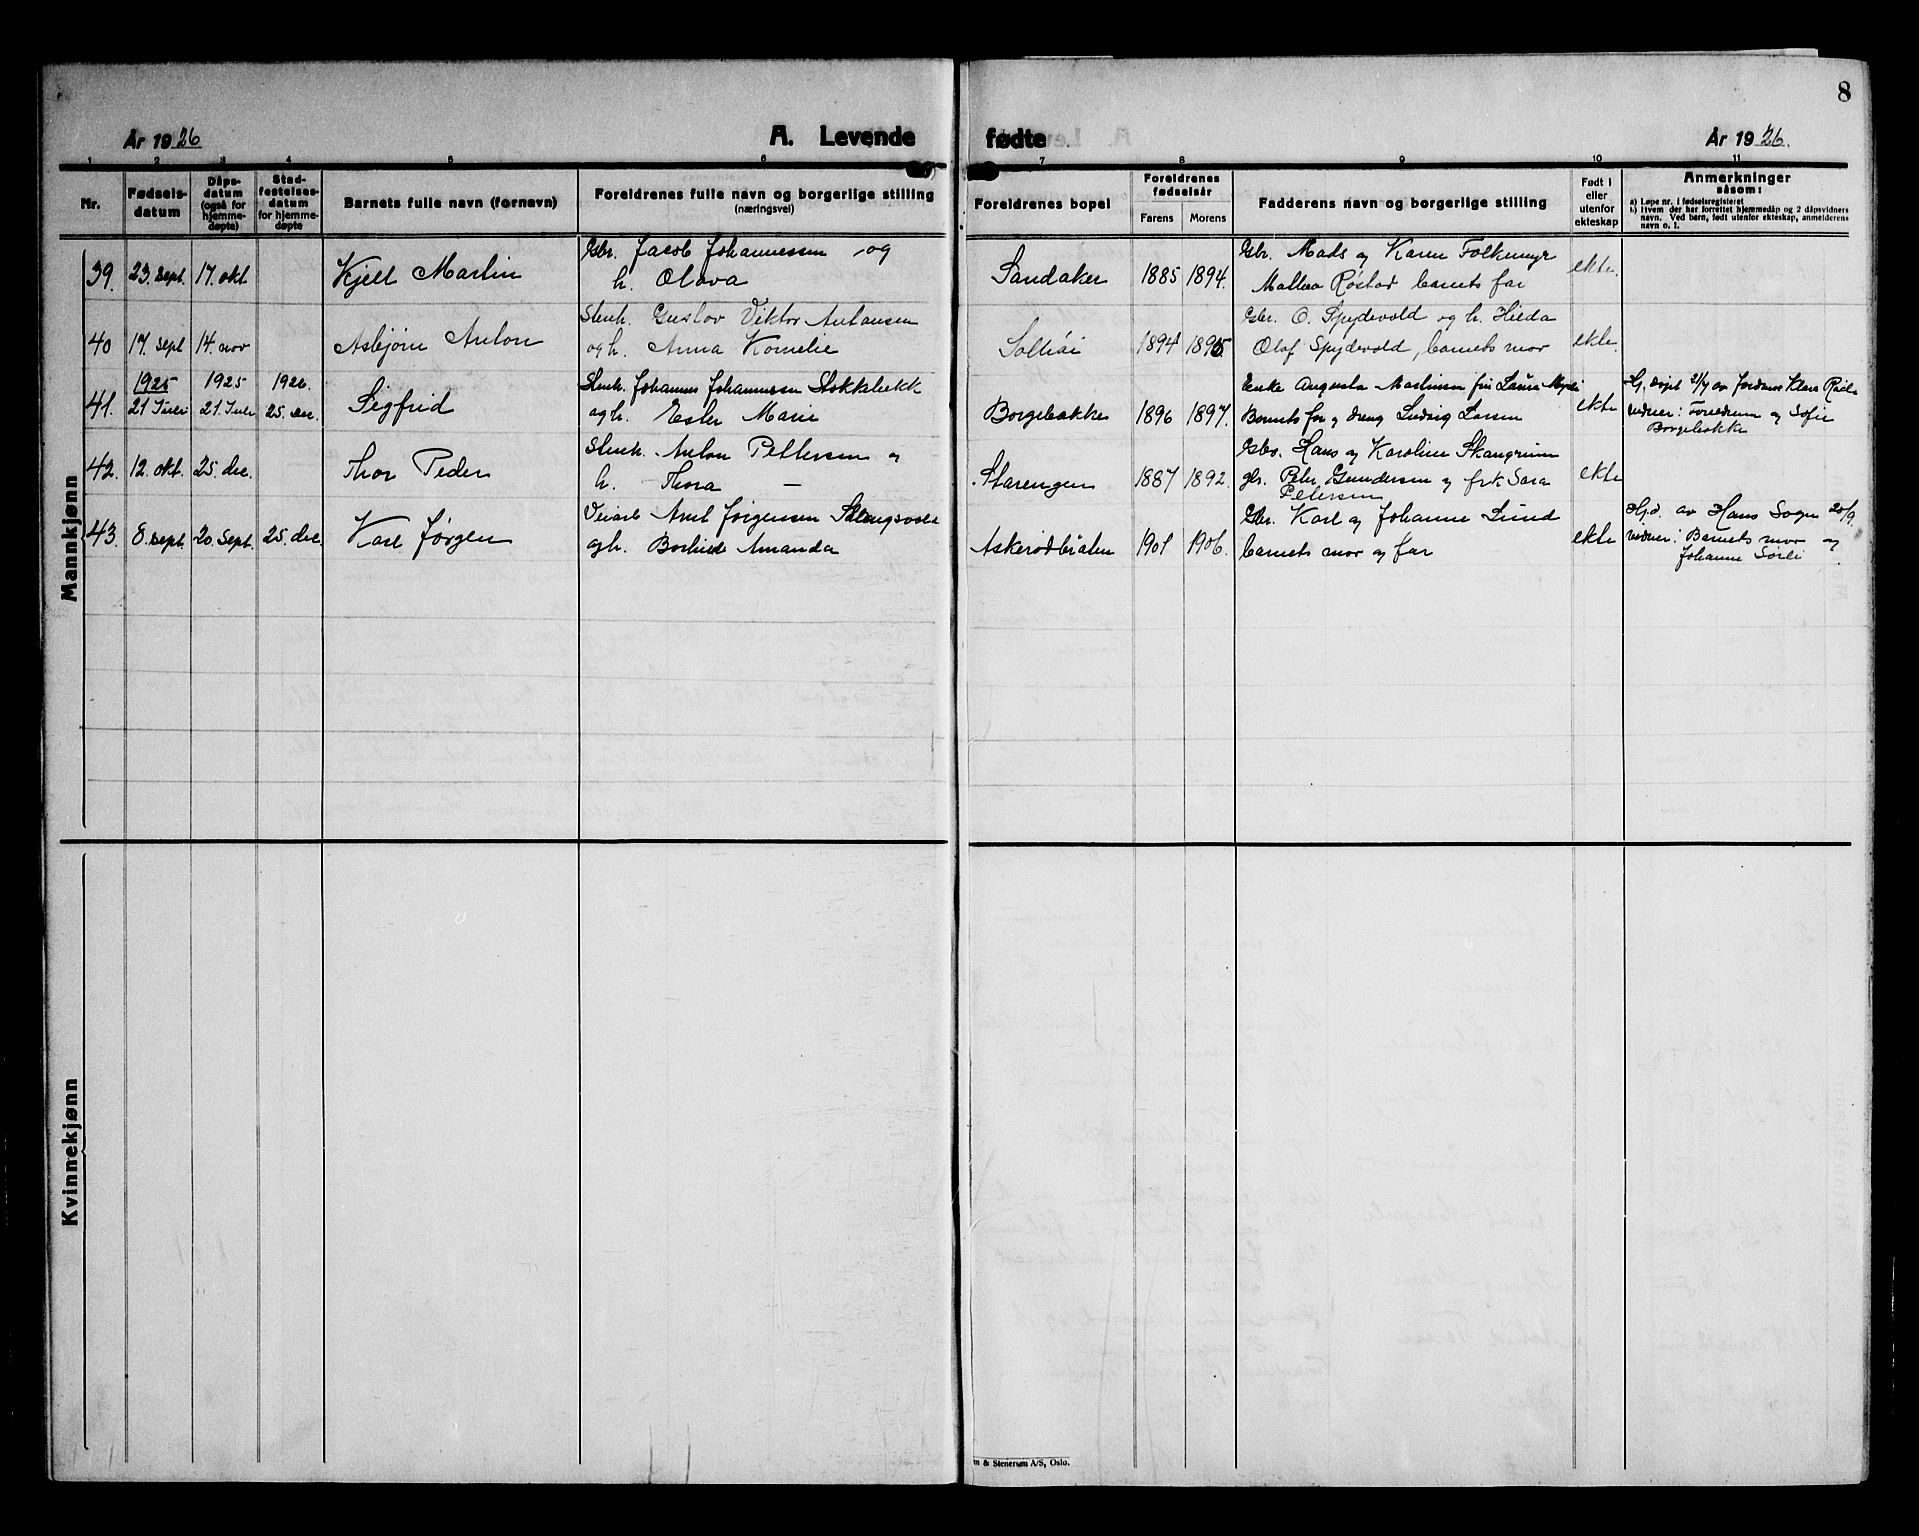 8
År 1926
A. Levende
fødte
År 1926.
1 2 3 4 5 6 7 8 9 10 11
Nr.
Fødsels-
datum
Dåps-
datum
(også for
hjemme-
døpte)
Stad-
festelses-
datum
for hjemme-
døpte
Barnets fulle navn (fornavn)
Foreldrenes fulle navn og borgerlige stilling
(næringsvei)
Foreldrenes bopel
Foreldrenes
fødselsår
Farens
Morens
Fadderens navn og borgerlige stilling
Født i
eller
utenfor
ekteskap
Anmerkninger
såsom:
a) Løpe nr. i fødselsregisteret
b) Hvem der har forrettet hjemmedåp og 2 dåpsvidners
navn. Ved barn, født utenfor ekteskap, anmelderens
navn o. l.
Mankjønn
39. 23. sept. 17. okt Kjell Martin
Gbr. Jacob Johannessen og
h. Olava
Sandaker 1885 1894.
Gbr. Mads og Karen Folkemyr
Mathea Røstad barnets far
ekte.
40 17. sept 14. nov Asbjørn Anton
Stenh. Gustav Viktor Antonsen
og h. Anna Kornelie
1894 1895
Gbr. O. Spydevold og h. Hilda
Olaf Spydevold, barnets mor
ekte.
1925 1925 1926.
41. 21 Juli 21. Juli 25. des. Sigfrid
Stenh. Johannes Johannessen Stokkebekk
og h. Ester Marie
Borgebakke 1896 1897.
Enke Augusta Martinsen frk Laura
Barnets far og dreng Ludvig Larsen
ekte
Hj. døpt 21/7 av Jordmor Klara
vidner: Foreldrene og Sofie
Borgebakke
42. 12. okt. 25. dec. Thor Peder
Stenh. Anton Pettersen og
h. Thora —
Starengen 1887 1892.
Gbr. Hans og Karoline Skangrum
gbr. Peter Gundersen og frk Sara
Petersen
ekte
43. 8. sept 20. Sept. 25. dec Karl Jørgen
Veiarb Axel Jørgensen Slangsvold
og h. Borhild Amanda
Askerødbråten 1901 1906.
Gbr. Karl og Johanne Lund
barnets mor og far
ekte
Hj.d. av Hans Sogn 20/9.
vidner: Barnets mor og
Johanne Sørli
Kvinnekjønn
m & Stenersen A/S, Oslo.